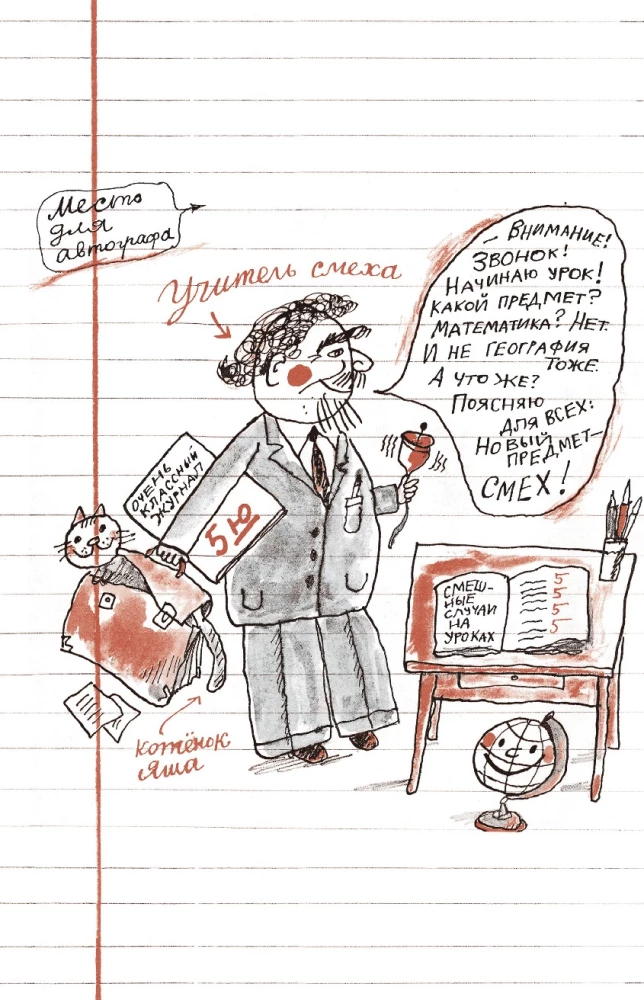 Место
для
автографа
Учитель смеха
– ВНИМАНИЕ!
ЗВОНОК!
НАЧИНАЮ УРОК!
КАКОЙ ПРЕДМЕТ?
МАТЕМАТИКА? НЕТ.
И НЕ ГЕОГРАФИЯ
ТОЖЕ.
А ЧТО ЖЕ?
ПОЯСНЯЮ
ДЛЯ ВСЕХ:
НОВЫЙ
ПРЕДМЕТ–
СМЕХ!
ОЧЕНЬ
КЛАССНЫЙ
ЖУРНАЛ
5 Ю
СМЕШ-
НЫЕ
СЛУЧАИ
НА
УРОКАХ
5
5
5
5
котёнок
Яша